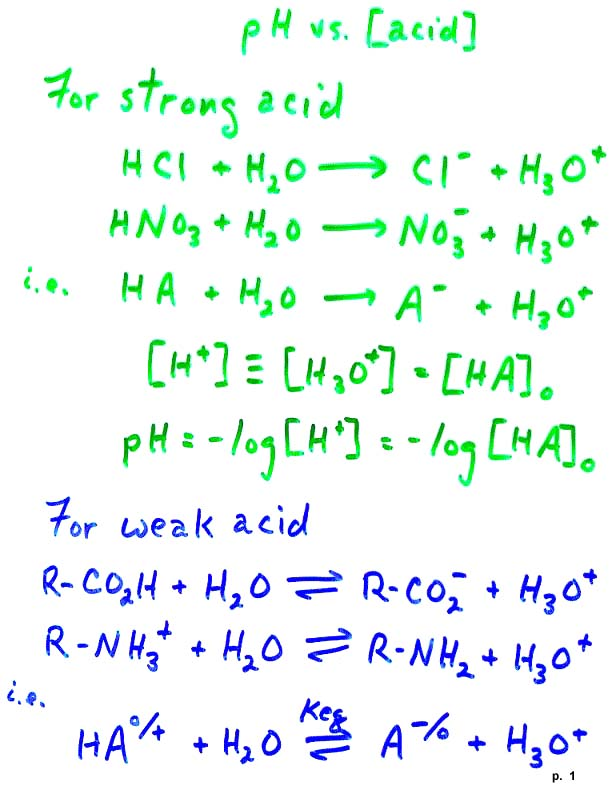 pH vs. [acid]
For strong acid
HCl + H₂O ⟶ Cl⁻ + H₃O⁺
HNO₃ + H₂O ⟶ NO₃⁻ + H₃O⁺
i.e. HA + H₂O ⟶ A⁻ + H₃O⁺
[H⁺] ≡ [H₃O⁺] = [HA]₀
pH = -log[H⁺] = -log[HA]₀
For weak acid
R-CO₂H + H₂O ⇌ R-CO₂⁻ + H₃O⁺
R-NH₃⁺ + H₂O ⇌ R-NH₂ + H₃O⁺
i.e.
Keq
HA⁰/⁺ + H₂O ⇌ A⁻/⁰ + H₃O⁺
p. 1